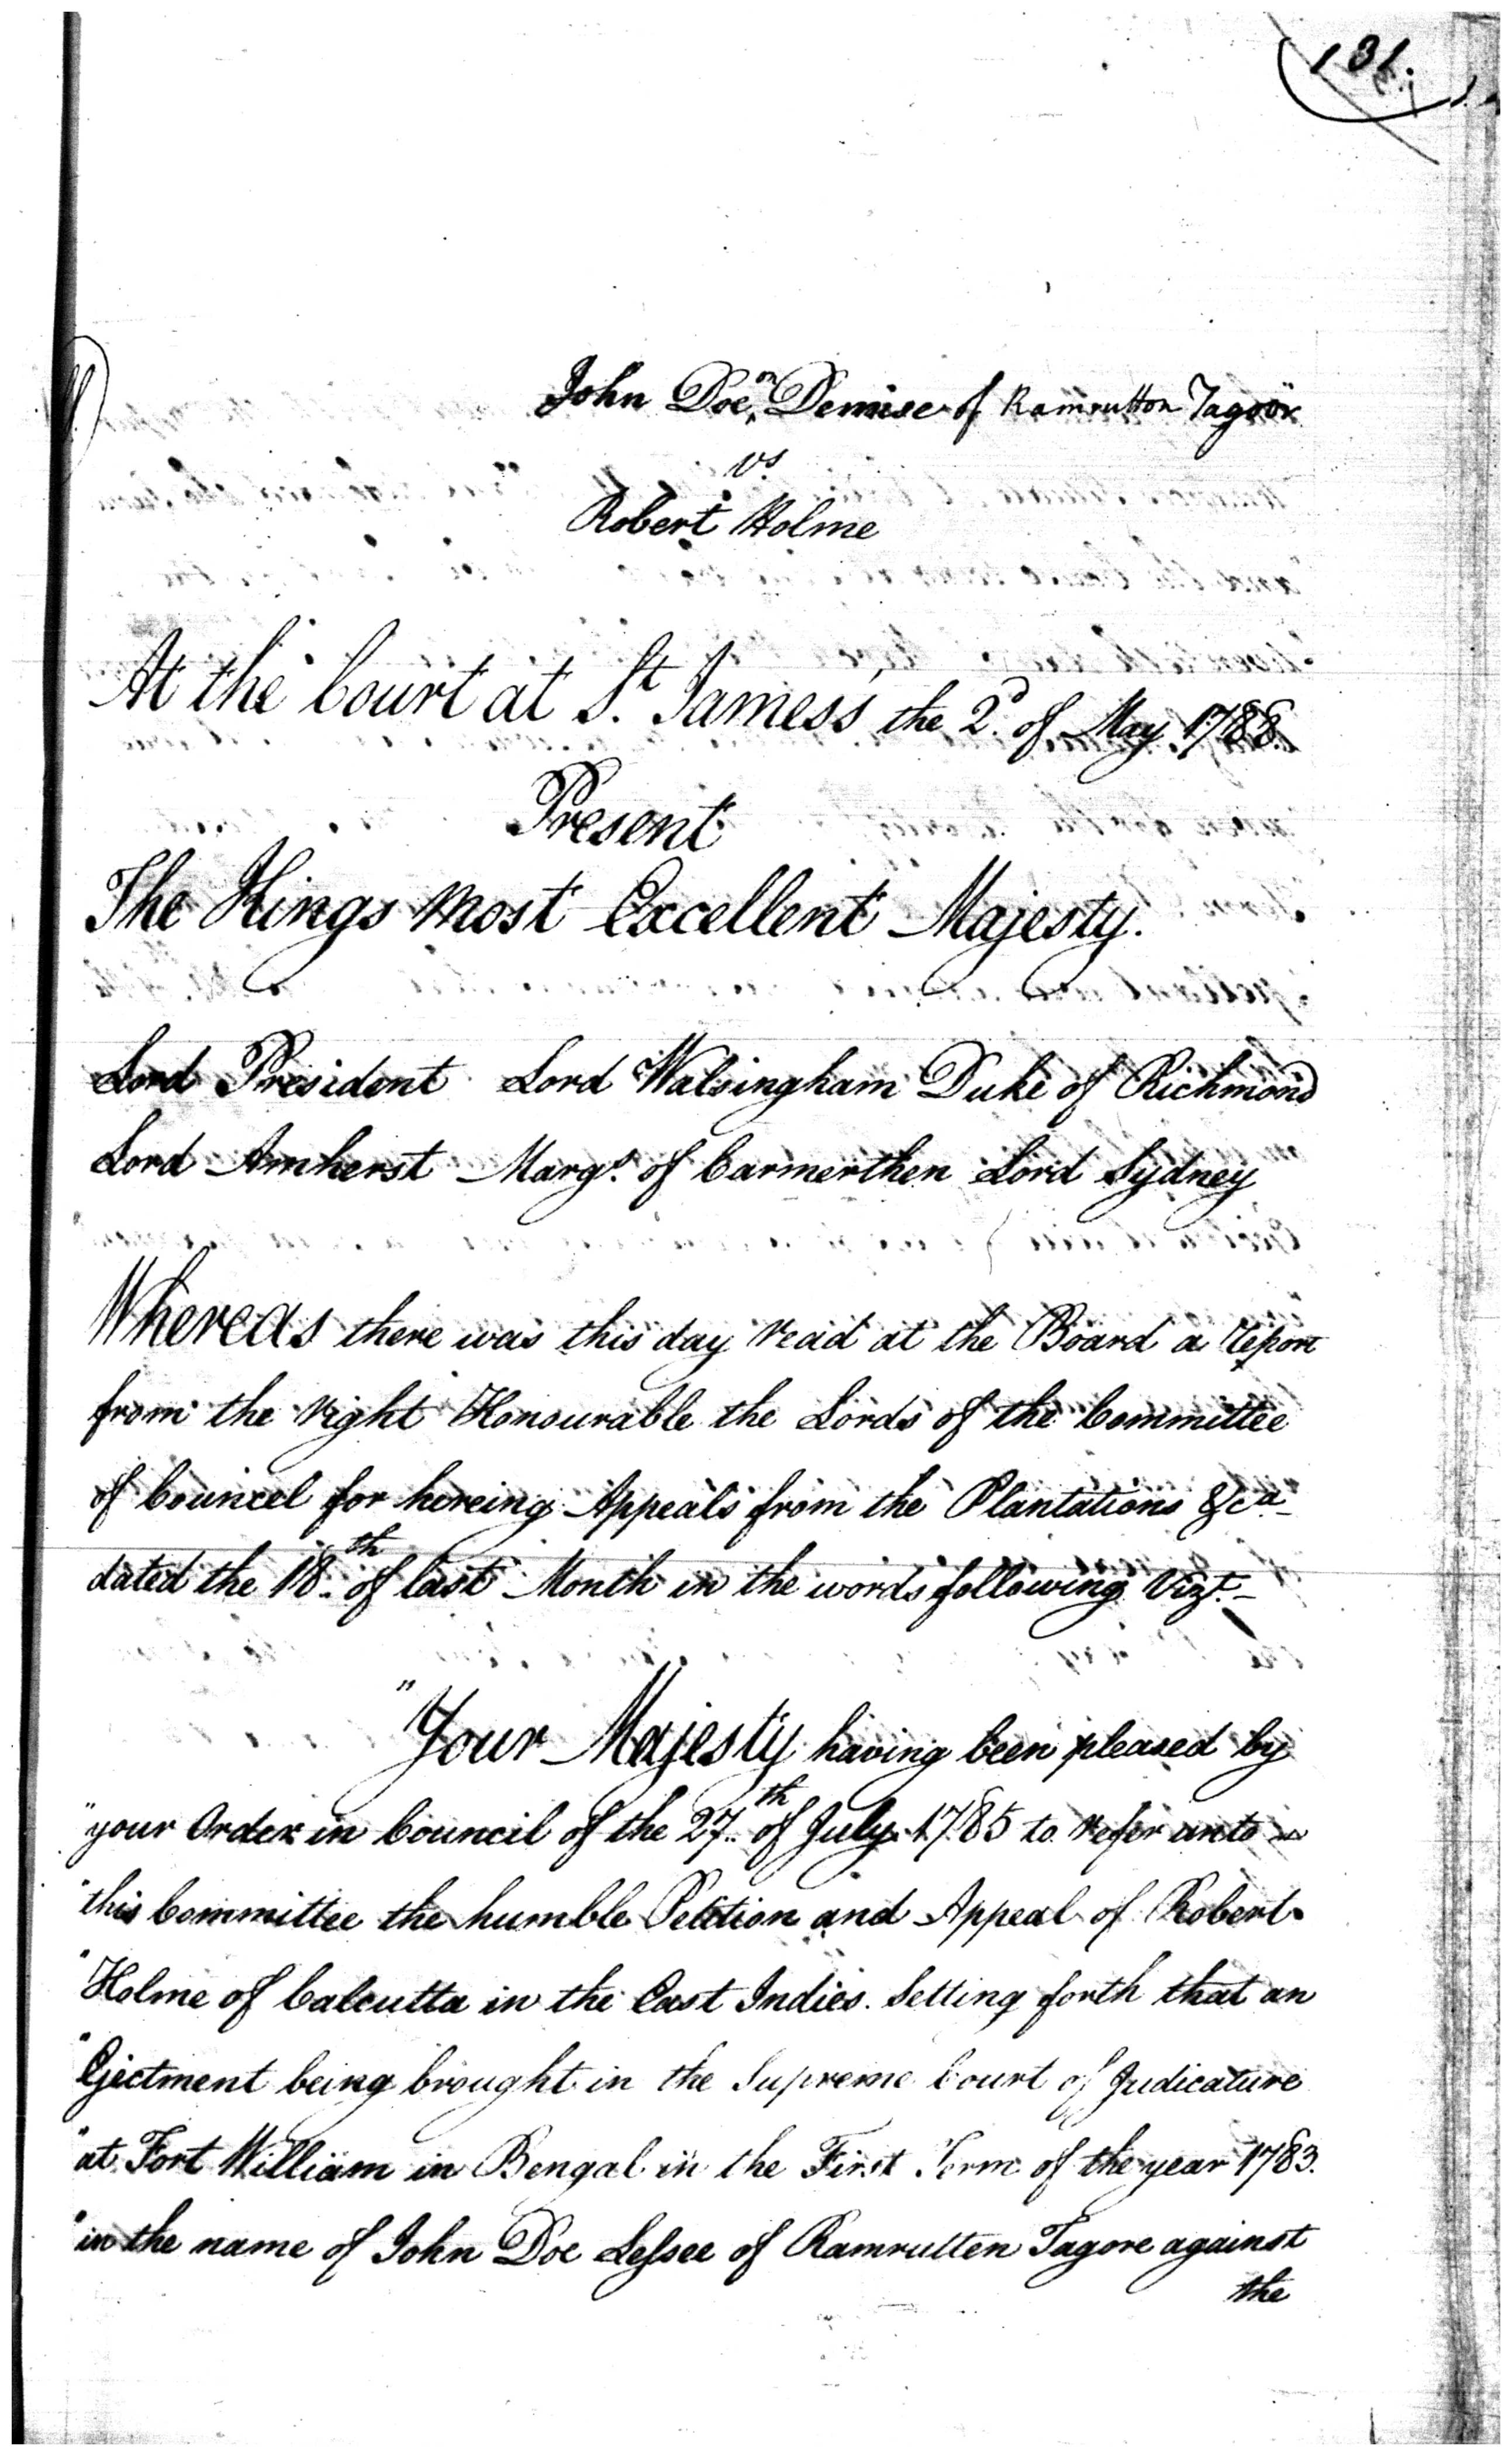 131.
John Doe on Demise of Ramrutton Tagoor
vs
Robert Holme
At the Court at St. James's, the 2d. of May 1788.
Present
The Kings Most Excellent Majesty.
Lord President Lord Walsingham Duke of Richmond
Lord Amherst Marqs. of Carmerthen Lord Sydney
Whereas there was this day read at the Board a report
from the right Honourable the Lords of the Committee
of Councel for hereing Appeals from the Plantations &ca.
dated the 18th. of last Month in the words following Vizt.
"Your Majesty having been pleased by
"your Order in Council of the 27th. of July 1785 to refer unto
"this Committee the humble Petition and Appeal of Robert
"Holme of Calcutta in the East Indies. Setting forth that an
"Ejectment being brought in the Supreme Court of Judicature
"at Fort William in Bengal in the First Term of the year 1783.
"in the name of John Doe Lessee of Ramrutten Tagore against
the